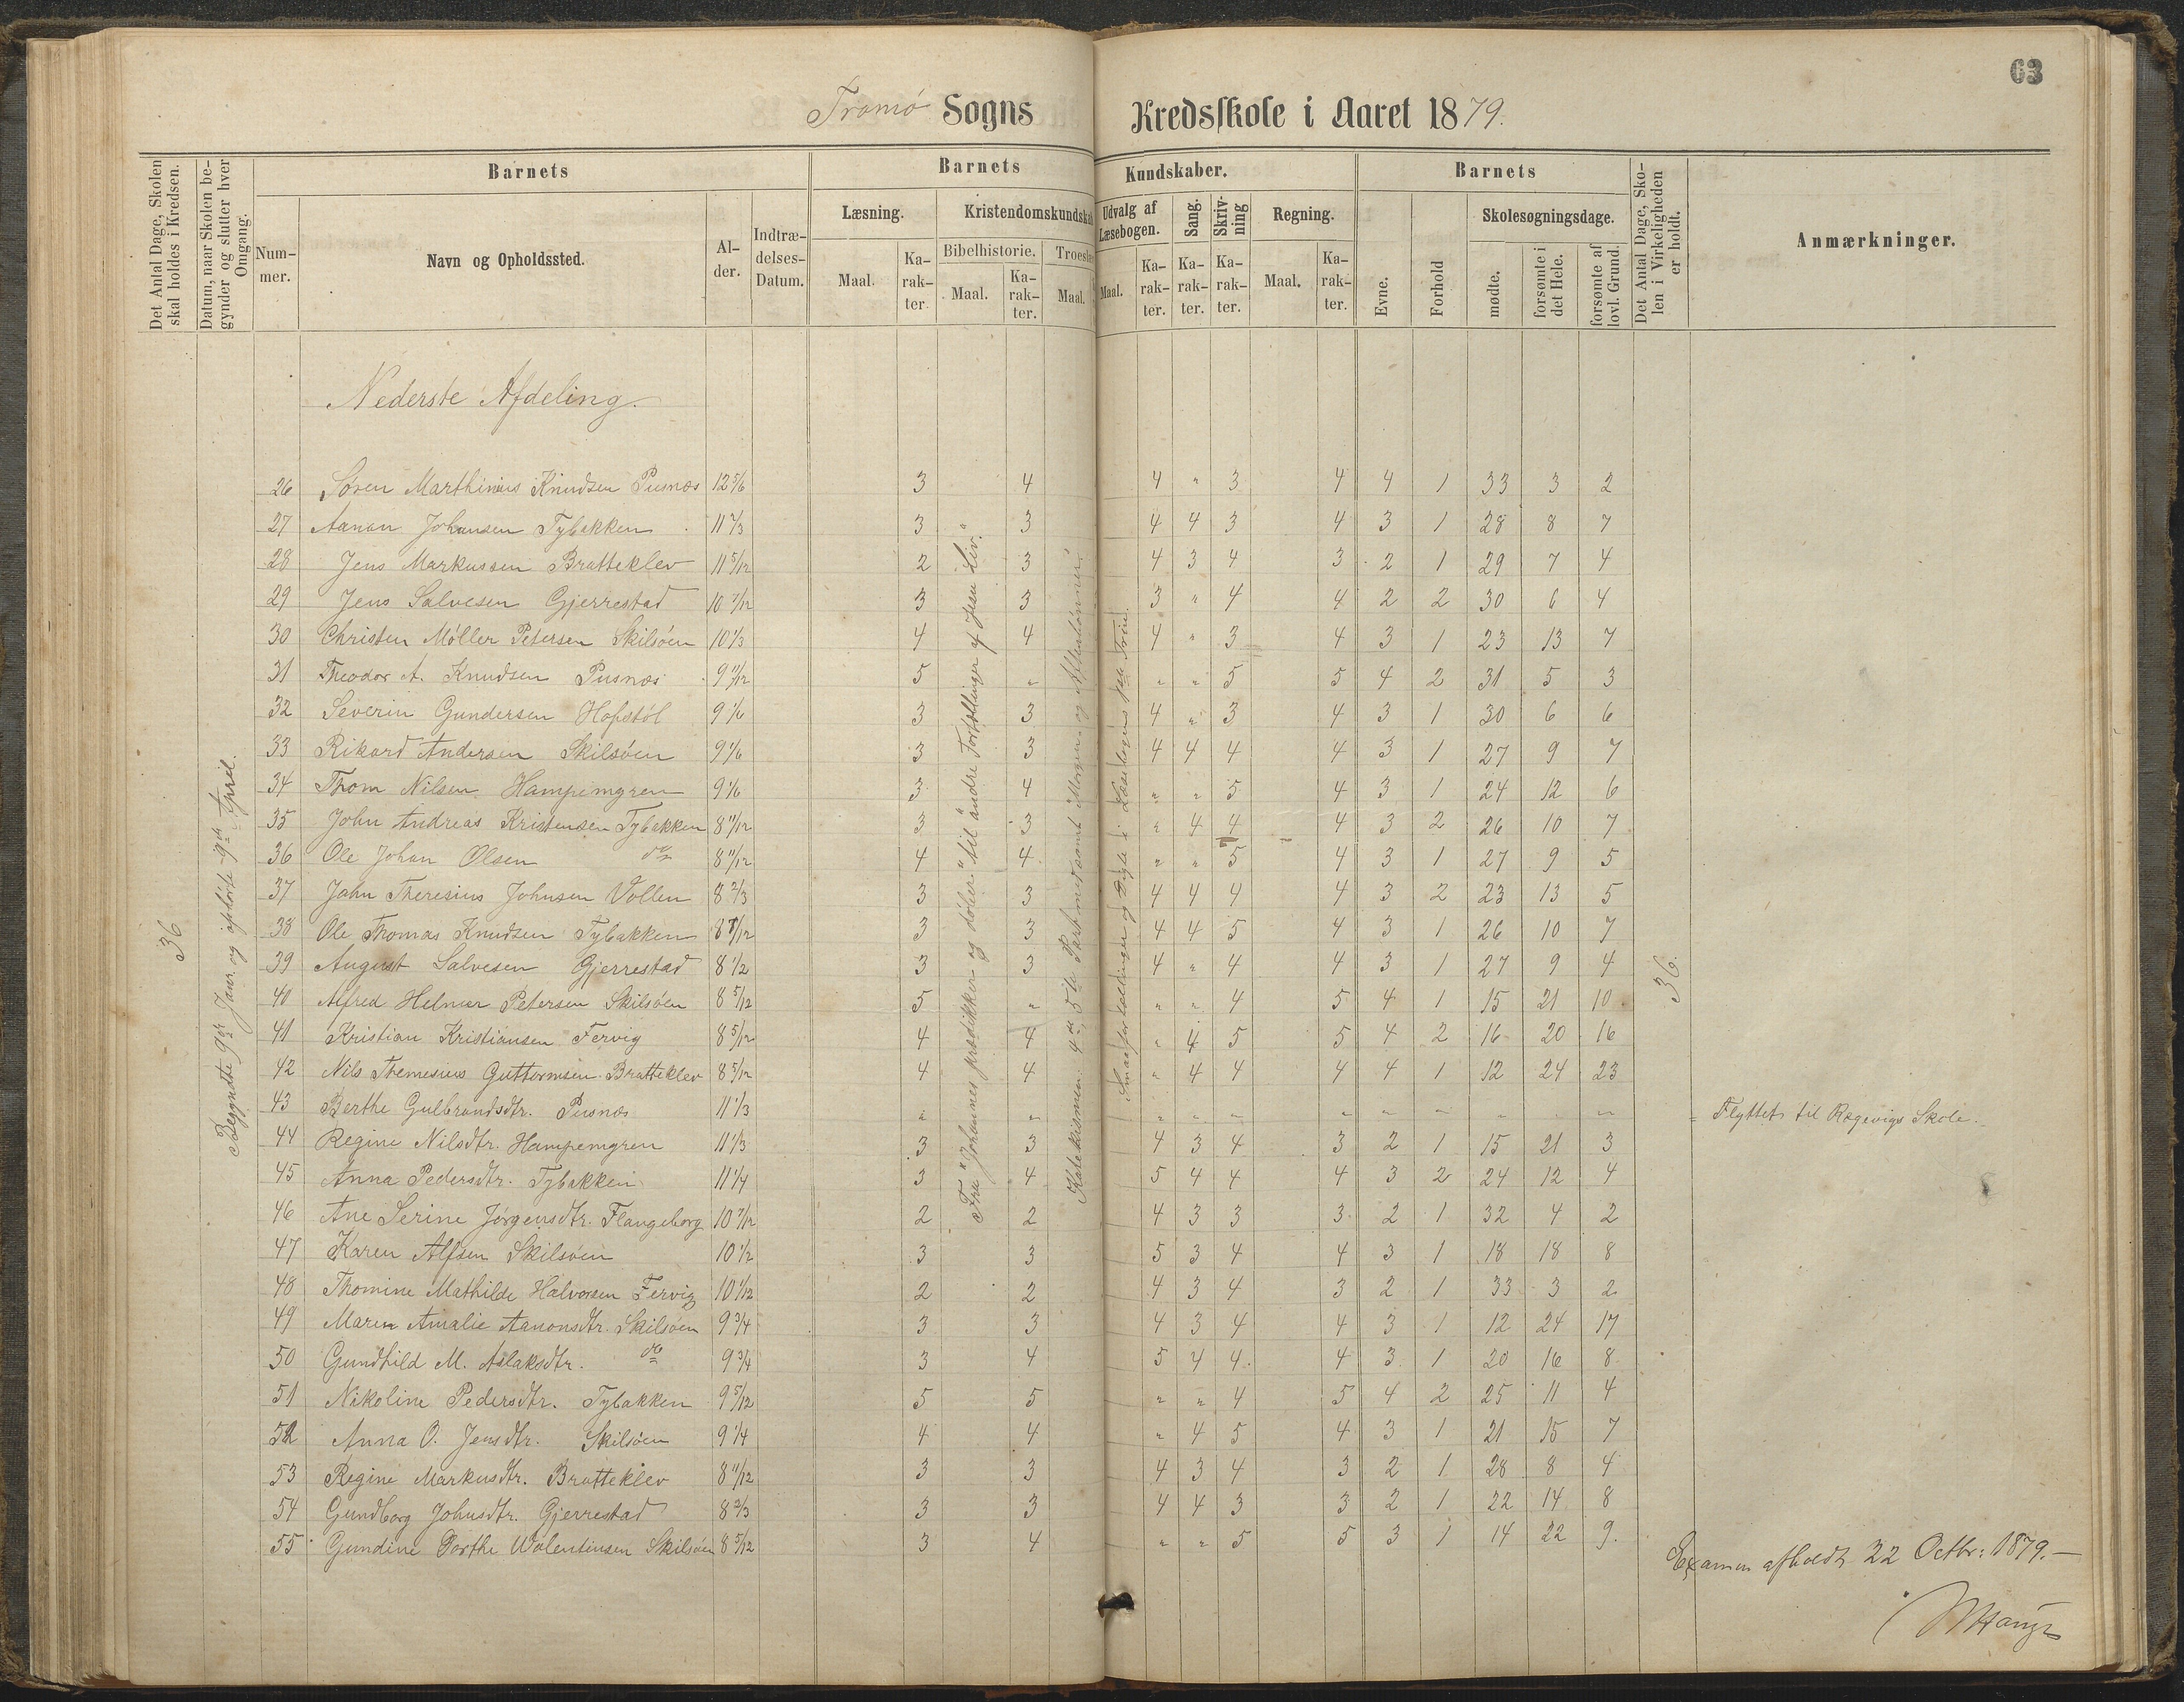 63
Tromø Sogns Kredsskole i Aaret 1879.
Det Antal Dage, Skolen skal holdes i Kredsen.
Datum, naar Skolen begynder og slutter hver Omgang.
Barnets
Nummer.
Navn og Opholdssted.
Alder.
Indtrædelses-Datum.
Barnets Kundskaber.
Læsning.
Maal.
Karakter.
Kristendomskundskab
Bibelhistorie.
Maal.
Karakter.
Troeslæ
Maal.
Udvalg af Læsebogen.
Maal.
Karakter.
Sang.
Karakter.
Skrivning
Karakter.
Regning.
Maal.
Karakter.
Barnets
Evne.
Forhold
Skolesøgningsdage.
mødte.
forsømte i det Hele.
forsømte af lovl. Grund.
Det Antal Dage, Skolen i Virkeligheden er holdt.
Anmærkninger.
Nederste Afdeling.
36
Begyndte 9de Janr. og ophørte 9de April.
Fra "Johannes prædikken og døber" til "andre Fortællinger af Jesu Liv."
Katekismen 4de, 5te Part med samt Morgen- og Aftenbønnen,
Smaafortællinger og Digte i Læsebogens 1ste Trin.
36.
26 Søren Marthinius Knudsen Pusnæs 12 5/6 3 4 4 " 3 4 4 1 33 3 2
27 Aanon Johansen Tybakken 11 2/3 3 3 4 4 3 4 3 1 28 8 7
28 Jens Markussen Bratteklev 11 5/12 2 3 4 3 4 3 2 1 29 7 4
29 Jens Salvesen Gjerrestad 10 7/12 3 3 3 " 4 4 2 2 30 6 4
30 Christen Møller Petersen Skilsøen 10 1/3 4 4 4 " 3 4 3 1 23 13 7
31 Theodor A. Knudsen Pusnæs 9 11/12 5 " " " 5 5 4 2 31 5 3
32 Severin Gundersen Hofstøl 9 1/6 3 3 4 " 3 4 3 1 30 6 6
33 Rikard Andersen Skilsøen 9 1/6 3 3 4 4 4 4 3 1 27 9 7
34 Thom Nilsen Hampemyren 9 1/6 3 4 " " 5 4 3 1 24 12 6
35 John Andreas Kristensen Tybakken 8 11/12 3 3 " 4 4 4 3 2 26 10 7
36 Ole Johan Olsen do 8 11/12 4 4 " " 5 4 3 1 27 9 5
37 John Theresius Johnsen Vollen 8 2/3 3 3 4 4 4 4 3 2 23 13 5
38 Ole Thomas Knudsen Tybakken 8 7/12 3 3 4 4 5 4 3 1 26 10 7
39 August Salvesen Gjerrestad 8 1/2 3 3 4 " 4 4 3 1 27 9 4
40 Alfred Helmer Petersen Skilsøen 8 5/12 5 " " " 4 5 4 1 15 21 10
41 Kristian Kristiansen Fervig 8 5/12 4 4 " 4 5 5 4 2 16 20 16
42 Nils Themesius Guttormsen Bratteklev 8 5/12 4 4 " 4 4 4 4 1 12 24 23
43 Berthe Gulbrandsdtr. Pusnæs 11 1/3 " " " " " " " " " " " Flyttet til Rægevigs Skole.
44 Regine Nilsdtr. Hampemyren 11 1/3 3 3 4 3 4 3 2 1 15 21 3
45 Anna Pedersdtr. Tybakken 11 1/4 3 4 5 4 4 4 3 2 24 12 4
46 Ane Serine Jørgensdtr. Flangeborg 10 7/12 2 2 4 3 3 3 2 1 32 4 2
47 Karen Alfsen Skilsøen 10 1/2 3 3 5 3 4 4 3 1 18 18 8
48 Thomine Mathilde Halvorsen Fervig 10 1/12 2 2 4 3 4 3 2 1 33 3 2
49 Maren Amalie Aanonsdtr. Skilsøen 9 3/4 3 3 4 3 4 4 3 1 12 24 17
50 Gundhild M. Aslaksdtr. do 9 3/4 3 4 5 4 4 4 3 1 20 16 8
51 Nikoline Pedersdtr. Tybakken 9 5/12 5 5 " " 4 5 4 2 25 11 4
52 Anna O. Jensdtr. Skilsøen 9 1/4 4 4 " 4 5 4 3 1 21 15 7
53 Regine Markusdtr. Bratteklev 8 11/12 3 3 4 3 4 3 2 1 28 8 4
54 Gundborg Johnsdtr. Gjerrestad 8 2/3 3 3 4 4 3 3 2 1 22 14 8
55 Gundine Dorthe Walentinsen Skilsøen 8 5/12 3 4 " " 5 5 3 1 14 22 9.
Examen afholdt 22 Octbr: 1879.—